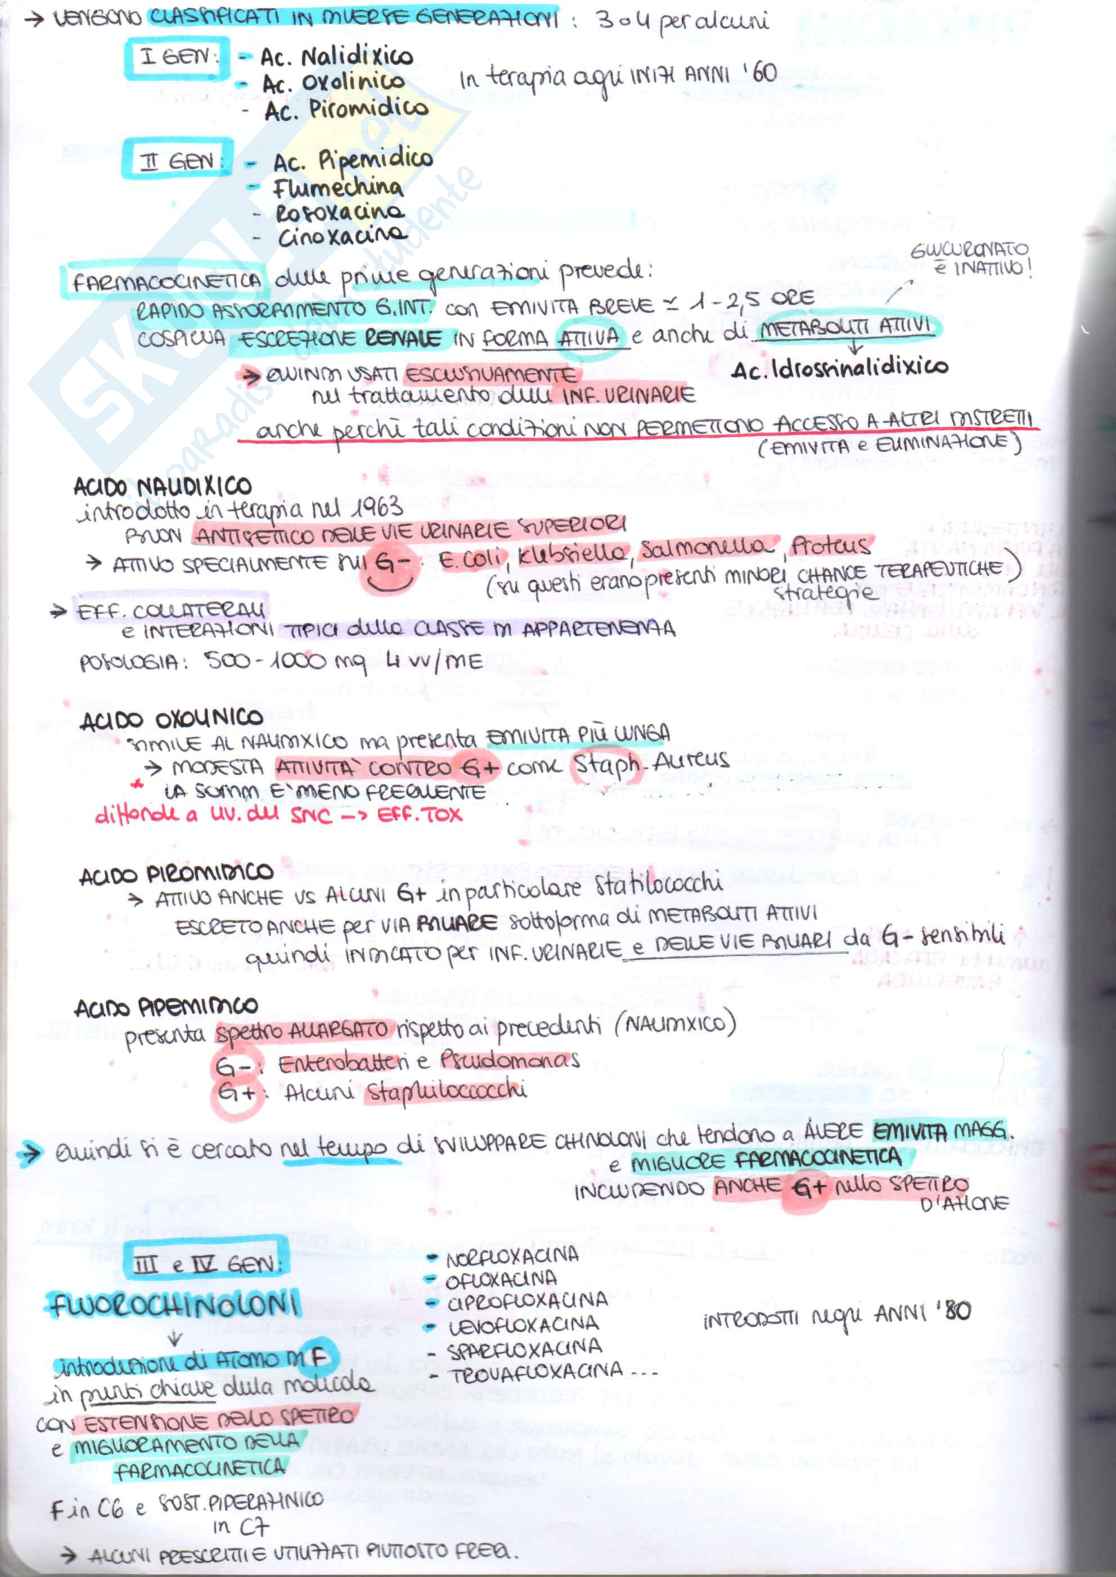 → VENGONO CLASSIFICATI IN DIVERSE GENERAZIONI : 3 o 4 per alcuni
I GEN: - Ac. Nalidixico
- Ac. Oxolinico
- Ac. Piromidico
In terapia agli INIZI ANNI '60
II GEN: - Ac. Pipemidico
- Flumechina
- Rosoxacina
- Cinoxacina
FARMACOCINETICA delle prime generazioni prevede:
GLUCURONATO
è INATTIVO!
RAPIDO ASSORBIMENTO G.INT. con EMIVITA BREVE ≃ 1-2,5 ORE
COSPICUA ESCREZIONE RENALE IN FORMA ATTIVA e anche di METABOLITI ATTIVI
Ac. Idrossinalidixico
→ QUINDI USATI ESCLUSIVAMENTE
nel trattamento delle INF. URINARIE
anche perchè tali condizioni NON PERMETTONO ACCESSO A ALTRI DISTRETTI
(EMIVITA e ELIMINAZIONE)
ACIDO NALIDIXICO
introdotto in terapia nel 1963
BUON ANTISETTICO DELLE VIE URINARIE SUPERIORI
→ ATTIVO SPECIALMENTE SUI G- : E. Coli, Klebsiella, Salmonella, Proteus
(su questi erano presenti MINORI CHANCE TERAPEUTICHE)
strategie
→ EFF. COLLATERALI
e INTERAZIONI TIPICI della CLASSE DI APPARTENENZA
POSOLOGIA: 500-1000 mg 4 vv/DIE
ACIDO OXOLINICO
SIMILE AL NALIDIXICO ma presenta EMIVITA PIÙ LUNGA
→ MODESTA ATTIVITA' CONTRO G+ come Staph. Aureus
* LA SOMM E' MENO FREQUENTE
diffonde a liv. del SNC → EFF. TOX
ACIDO PIROMIDICO
→ ATTIVO ANCHE VS ALCUNI G+ in particolare Stafilococchi
ESCRETO ANCHE per VIA BILIARE sottoforma di METABOLITI ATTIVI
quindi INDICATO per INF. URINARIE e DELLE VIE BILIARI da G- sensibili
ACIDO PIPEMIDICO
presenta spettro ALLARGATO rispetto ai precedenti (NALIDIXICO)
G-: Enterobatteri e Pseudomonas
G+: Alcuni Staphilococchi
→ Quindi si è cercato nel tempo di SVILUPPARE CHINOLONI che tendono a AVERE EMIVITA MAGG.
e MIGLIORE FARMACOCINETICA
INCLUDENDO ANCHE G+ nello SPETTRO
D'AZIONE
III e IV GEN:
FLUOROCHINOLONI
- NORFLOXACINA
- OFLOXACINA
- CIPROFLOXACINA
- LEVOFLOXACINA
- SPARFLOXACINA
- TROVAFLOXACINA ...
INTRODOTTI negli ANNI '80
introduzione di ATOMO DI F
in punti chiave della molecola
CON ESTENSIONE DELLO SPETTRO
e MIGLIORAMENTO DELLA
FARMACOCINETICA
F in C6 e SOST. PIPERAZINICO
in C7
→ ALCUNI PRESCRITTI E UTILIZZATI PIUTTOSTO FREQ.